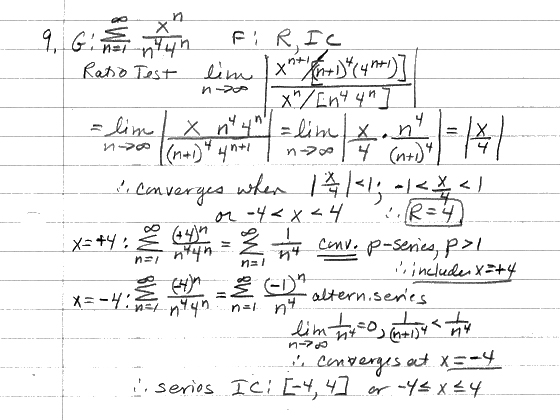 9. G: ∞∑n=1 xⁿ/n⁴4ⁿ F: R, IC
Ratio Test lim n→∞ |xⁿ⁺¹/[(n+1)⁴(4ⁿ⁺¹)] / xⁿ/[n⁴ 4ⁿ]|
= lim n→∞ |x n⁴ 4ⁿ/(n+1)⁴ 4ⁿ⁺¹| = lim n→∞ |x/4 · n⁴/(n+1)⁴| = |x/4|
∴ converges when |x/4| < 1; -1 < x/4 < 1
or -4 < x < 4 ∴ R = 4
x = +4: ∞∑n=1 (+4)ⁿ/n⁴4ⁿ = ∞∑n=1 1/n⁴ conv. p-series, p > 1
∴ includes x = +4
x = -4: ∞∑n=1 (-4)ⁿ/n⁴4ⁿ = ∞∑n=1 (-1)ⁿ/n⁴ altern. series
lim n→∞ 1/n⁴ = 0, 1/(n+1)⁴ < 1/n⁴
∴ converges at x = -4
∴ series IC: [-4, 4] or -4 ≤ x ≤ 4